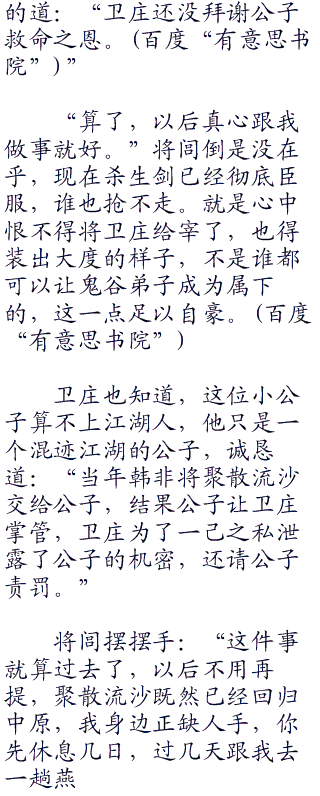 的道：“卫庄还没拜谢公子
救命之恩。(百度“有意思书
院”)”
“算了，以后真心跟我
做事就好。”将闾倒是没在
乎，现在杀生剑已经彻底臣
服，谁也抢不走。就是心中
恨不得将卫庄给宰了，也得
装出大度的样子，不是谁都
可以让鬼谷弟子成为属下
的，这一点足以自豪。(百度
“有意思书院”)
卫庄也知道，这位小公
子算不上江湖人，他只是一
个混迹江湖的公子，诚恳
道：“当年韩非将聚散流沙
交给公子，结果公子让卫庄
掌管，卫庄为了一己之私泄
露了公子的机密，还请公子
责罚。”
将闾摆摆手：“这件事
就算过去了，以后不用再
提，聚散流沙既然已经回归
中原，我身边正缺人手，你
先休息几日，过几天跟我去
一趟燕